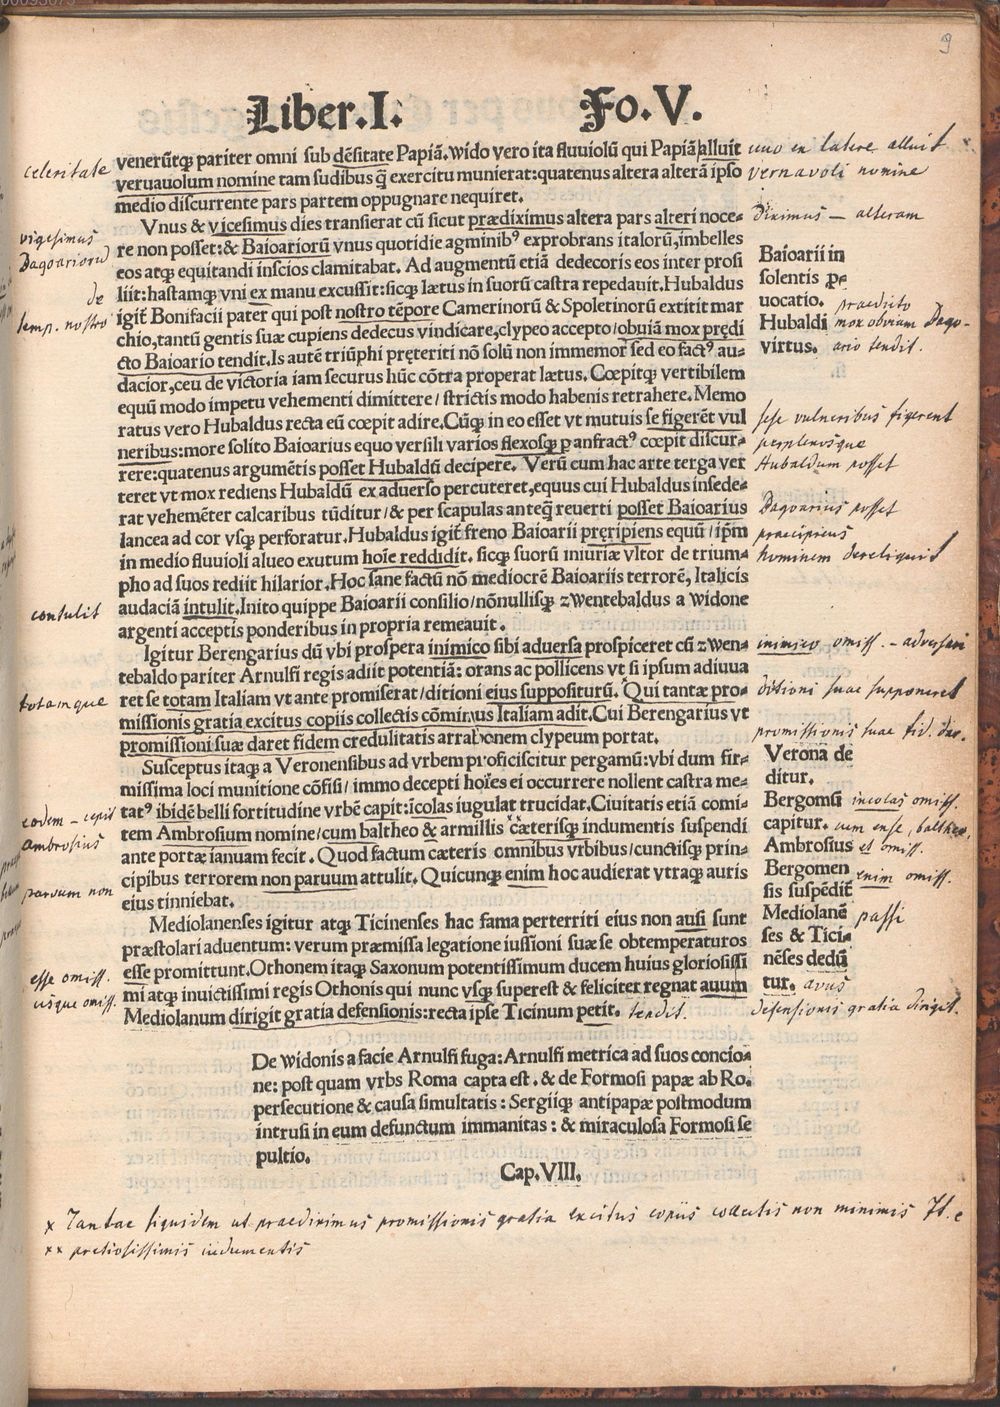 9
Liber.I. Fo.V.
venerūtqȝ pariter omni sub dēsitate Papiā.wido vero ita fluuiolū qui Papiā/alluit
veruauolum nomine tam sudibus q̄ exercitu munierat:quatenus altera alterā ipso
medio discurrente pars partem oppugnare nequiret.
Vnus & vicesimus dies transierat cū sicut prædiximus altera pars alteri noce-
re non posset:& Baioariorū vnus quotidie agminibꝰ exprobrans italorū,imbelles
eos atqȝ equitandi inscios clamitabat. Ad augmentū etiā dedecoris eos inter prosi
liit:hastamqȝ vni ex manu excussit:sicqȝ lætus in suorū castra repedauit.Hubaldus
igit̄ Bonifacii pater qui post nostro tēpore Camerinorū & Spoletinorū extitit mar
chio,tantū gentis suæ cupiens dedecus vindicare,clypeo accepto/obuiā mox prędi
cto Baioario tendit.Is autē triūphi pręteriti nō solū non immemor sed eo factꝰ au-
dacior,ceu de victoria iam securus hūc cōtra properat lætus. Cœpitqȝ vertibilem
equū modo impetu vehementi dimittere/ strictis modo habenis retrahere. Memo
ratus vero Hubaldus recta eū cœpit adire. Cūqȝ in eo esset vt mutuis se figerēt vul
neribus:more solito Baioarius equo versili varios flexosqȝ ꝑ anfractꝰ cœpit discur-
rere:quatenus argumētis posset Hubaldū decipere. Verū cum hac arte terga ver
teret vt mox rediens Hubaldū ex aduerso percuteret,equus cui Hubaldus insede-
rat vehemēter calcaribus tūditur/& per scapulas anteq̄ reuerti posset Baioarius
lancea ad cor vsqȝ perforatur.Hubaldus igit̄ freno Baioarii pręripiens equū/ip̄m
in medio fluuioli alueo exutum hoīe reddidit. sicqȝ suorū iniuriæ vltor de trium-
pho ad suos rediit hilarior.Hoc sane factū nō mediocrē Baioariis terrorē, Italicis
audaciā intulit.Inito quippe Baioarii consilio/nōnullisqȝ zwentebaldus a widone
argenti acceptis ponderibus in propria remeauit.
Igitur Berengarius dū vbi prospera inimico sibi aduersa prospiceret cū zwen-
tebaldo pariter Arnulfi regis adiit potentiā: orans ac pollicens vt si ipsum adiuua
ret se totam Italiam vt ante promiserat/ditioni eius suppositurū. Qui tantæ pro-
missionis gratia excitus copiis collectis cōminus Italiam adit.Cui Berengarius vt
promissioni suæ daret fidem credulitatis arrabonem clypeum portat.
Susceptus itaqȝ a Veronensibus ad vrbem proficiscitur pergamū:vbi dum fir-
missima loci munitione cōfisi/ immo decepti hoīes ei occurrere nollent castra me-
tatꝰ ibidē belli fortitudine vrbē capit:īcolas iugulat trucidat.Ciuitatis etiā comi-
tem Ambrosium nomine/cum baltheo & armillis cæterisqȝ indumentis suspendi
ante portæ ianuam fecit. Quod factum cæteris omnibus vrbibus/cunctisqȝ prin-
cipibus terrorem non paruum attulit. Quicunqȝ enim hoc audierat vtraqȝ auris
eius tinniebat.
Mediolanenses igitur atqȝ Ticinenses hac fama perterriti eius non ausi sunt
præstolari aduentum: verum præmissa legatione iussioni suæ se obtemperaturos
esse promittunt.Othonem itaqȝ Saxonum potentissimum ducem huius gloriosissi
mi atqȝ inuictissimi regis Othonis qui nunc vsqȝ superest & feliciter regnat auum
Mediolanum dirigit gratia defensionis:recta ipse Ticinum petit. tendit.
De widonis a facie Arnulfi fuga: Arnulfi metrica ad suos concio-
ne: post quam vrbs Roma capta est. & de Formosi papæ ab Ro.
persecutione & causa simultatis: Sergiiqȝ antipapæ postmodum
intrusi in eum defunctum immanitas: & miraculosa Formosi se
pultio.
Cap.VIII.
x Tantae siquidem ut praediximus promissionis gratia excitus copiis collectis non minimis It.
xx pretiosissimis indumentis
celeritate
vigesimus
Bagoariorū
de
temp. nostro
contulit
totamque
eodem – cepit
Ambrosius
parvum non
esse omiss.
usque omiss.
uno ex latere alluit
vernavoli nomine
diximus – alteram
Baioarii in
solentis ꝓ-
uocatio.
praedicto
Hubaldi mox obviam Bago-
virtus. ario tendit.
sese vulneribus figerent
perplexosque
Hubaldum posset
Bagoarius posset
praecipiens
hominem dereliquit
inimico omiss. – adversari
ditioni suae supponeret
promissionis suae fid. dar.
Verona de
ditur.
Bergomū incolas omiss.
capitur. cum ense, baltheo,
Ambrosius et omiss.
Bergomen enim omiss.
sis suspēdit̄
Mediolanē passi
ses & Tici-
nēses dedū
tur. avus
defensionis gratia dirigit.